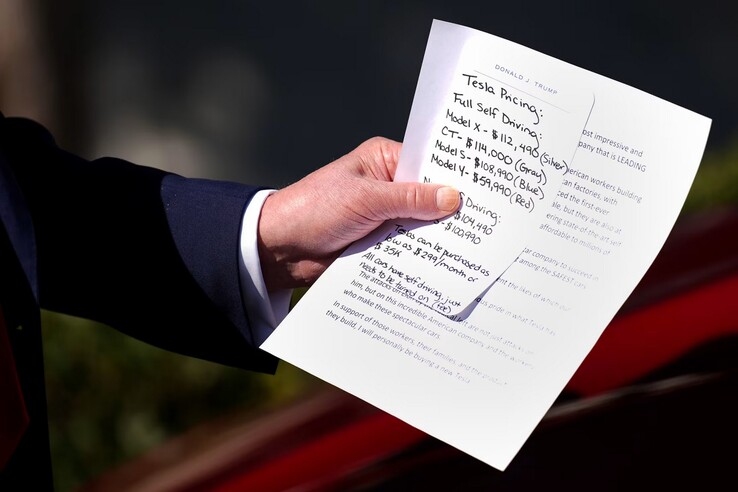 DONALD J. TRUMP
Tesla Pricing:
Full Self Driving:
Model X - $112,490 (Silver)
CT - $114,000 (Gray)
Model S - $108,990 (Blue)
Model Y - $59,990 (Red)
Driving:
$104,490
- $100,990
Teslas can be purchased as
low as $299/month or
$35K
All cars have self driving, just
needs to be turned on (fee)
ost impressive and
pany that is LEADING
erican workers building
can factories, with
ced the first-ever
le, but they are also at
ering state of the art self
affordable to millions of
ar company to succeed in
among the SAFEST cars
the likes of which our
ous pride in what Tesla has
The attacks on
are not just attacks on
him, but on this incredible American company and the workers
who make these spectacular cars.
In support of those workers, their families, and the
they build, I will personally be buying a new Tesla